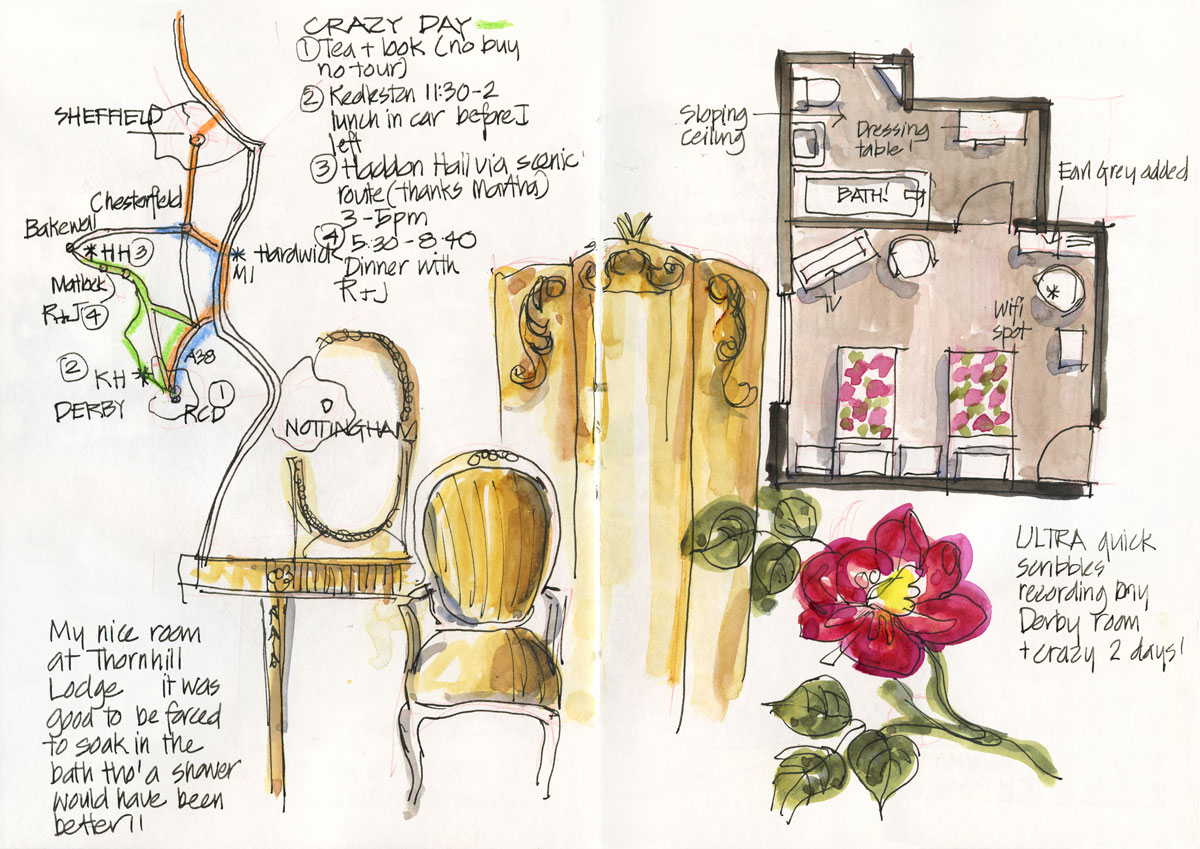 CRAZY DAY
① Tea + look (no buy
no tour)
② Kedleston 11:30-2
lunch in car before I
left
③ Haddon Hall via scenic
route (thanks Martha)
3-5pm
④ 5:30-8:40
Dinner with
R+J
SHEFFIELD
Chesterfield
Bakewell
* HH ③
* Hardwick
M1
Matlock
R+J ④
A38
② KH *
DERBY
RCD ①
NOTTINGHAM
My nice room
at Thornhill
Lodge it was
good to be forced
to soak in the
bath tho' a shower
would have been
better!!
Sloping
ceiling
Dressing
table!
BATH!
Earl Grey added
TV
Wifi
spot
*
ULTRA quick
scribbles
recording my
Derby room
+ crazy 2 days!